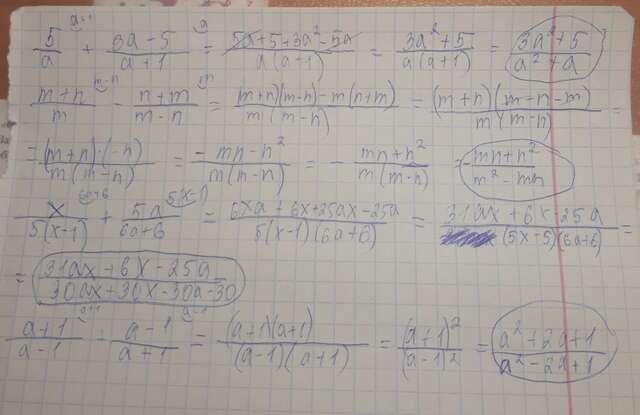 5/a + (3a-5)/(a+1) = (5a+5+3a²-5a)/(a(a+1)) = (3a²+5)/(a(a+1)) = (3a²+5)/(a²+a)
(m+n)/m - (n+m)/(m-n) = ((m+n)(m-n)-m(n+m))/(m(m-n)) = ((m+n)(m-n-m))/(m(m-n)) =
= ((m+n)·(-n))/(m(m-n)) = (-mn-n²)/(m(m-n)) = - (mn+n²)/(m(m-n)) = - (mn+n²)/(m²-mn)
x/(5(x-1)) + 5a/(6a+6) = (6xa+6x+25ax-25a)/(5(x-1)(6a+6)) = (31ax+6x-25a)/((5x-5)(6a+6)) =
= (31ax+6x-25a)/(30ax+30x-30a-30)
(a+1)/(a-1) - (a-1)/(a+1) = ((a+1)(a+1))/((a-1)(a+1)) = (a+1)²/(a-1)² = (a²+2a+1)/(a²-2a+1)